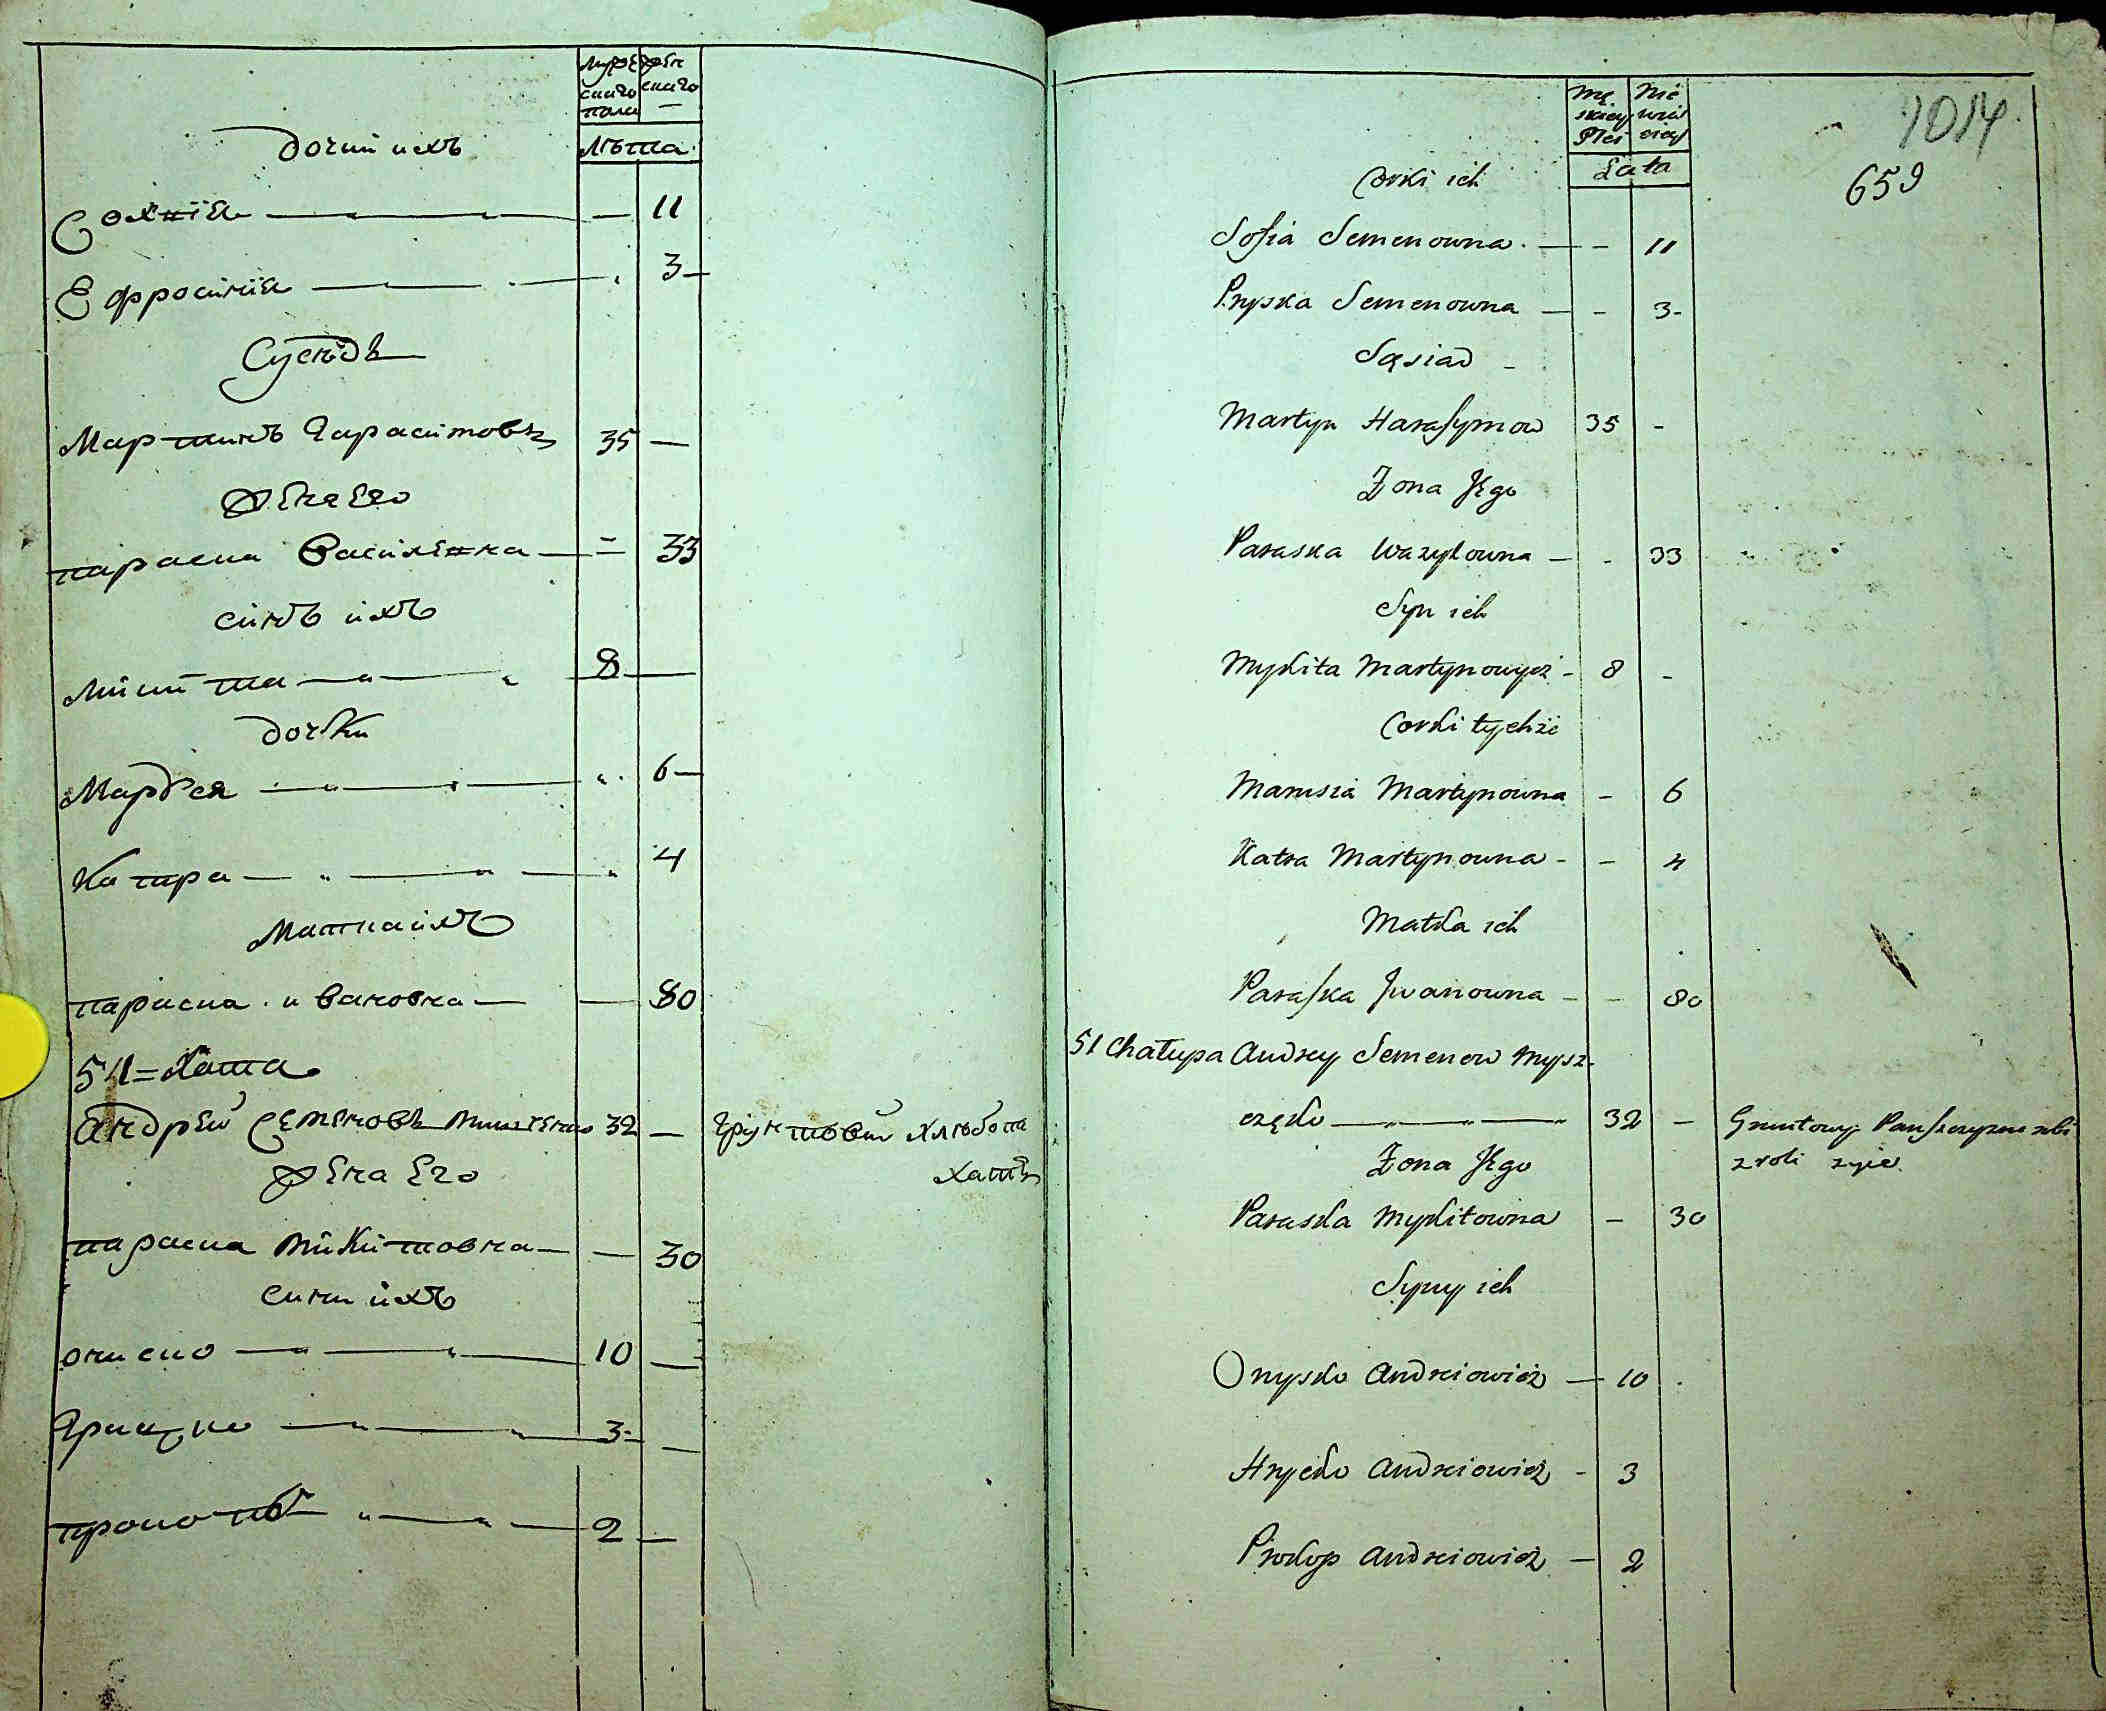 мужескаго пола женскаго
лѣта
дочки ихъ
Софѣія — 11
Ефросиния — 3
Сусѣдъ
Мартинъ Гарасимовъ 35 —
Жена Его
параска Василевна — 33
синъ ихъ
микита 8 —
дочки
Маруся 6
Катра 4
Матка ихъ
параска ивановна — 80
51 = Хата
андрей Семеновъ 32 — Грунтовый хлѣбопа
хатѣ
Жена Его
параска микитовна — 30
сини ихъ
ониско 10 —
Грицко 3 —
прокопъ 2 —
Męskiey Płci Niewieściey
Lata
1014
659
Corki ich
Sofia Semenowna — 11
Pryska Semenowna — 3
Sąsiad
Martyn Harasymow 35 -
Żona Jego
Paraska Wazylowna — 33
Syn ich
Mykita Martynowycz 8 -
Corki tychże
Marusia Martynowna - 6
Katra Martynowna - 4
Matka ich
Paraska Jwanowna - 80
51 Chałupa Andrey Semenow Mysz-
częko 32 - Gruntowy Panszczyzne robi
z roli żyie
Żona Jego
Paraska Mykitowna — 30
Syny ich
Onysko Andreiowicz — 10
Hrycko Andreiowicz - 3
Prokop Andreiowicz — 2